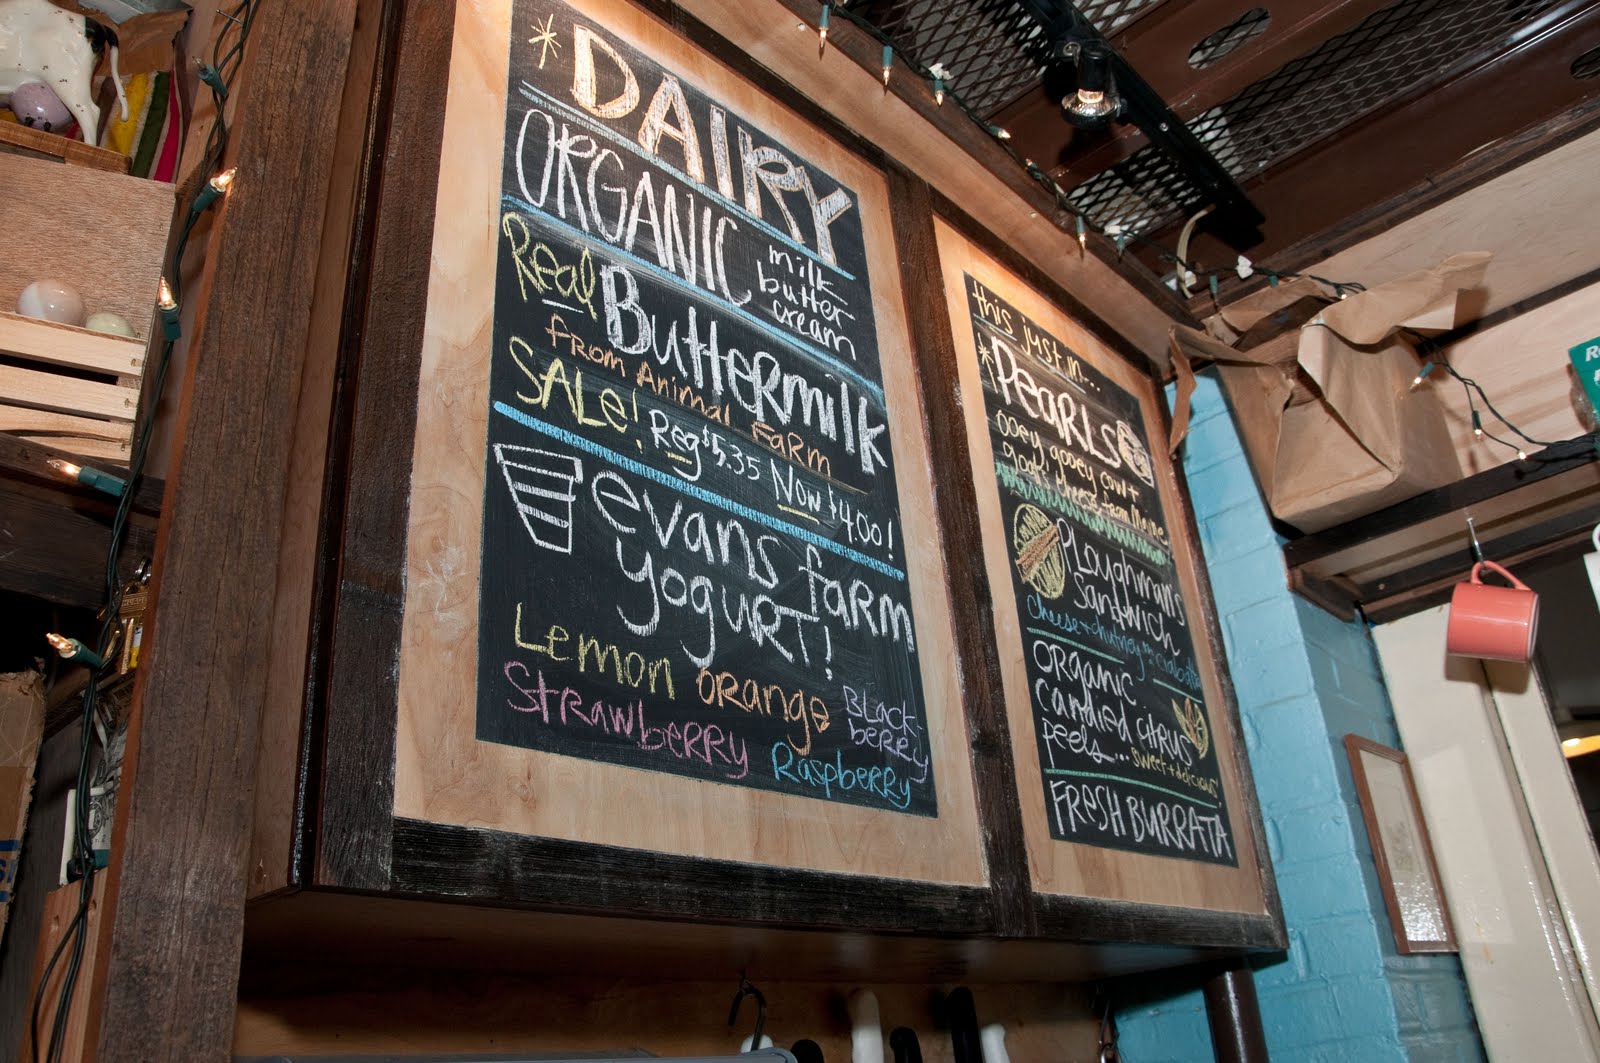 DAIRY
ORGANIC milk
butter
cream
Real Buttermilk
from Animal Farm
SALe! Reg $5.35 Now $4.00!
evans farm
yogurt!
Lemon orange Black-
berry
Strawberry Raspberry
this just in...
PeARLS
ooey, gooey cow +
goat cheese from Maine
Ploughman's
Sandwich
Cheese + chutney
ORGANIC
candied citrus
peels... sweet + delicious!
FRESH BURRATA